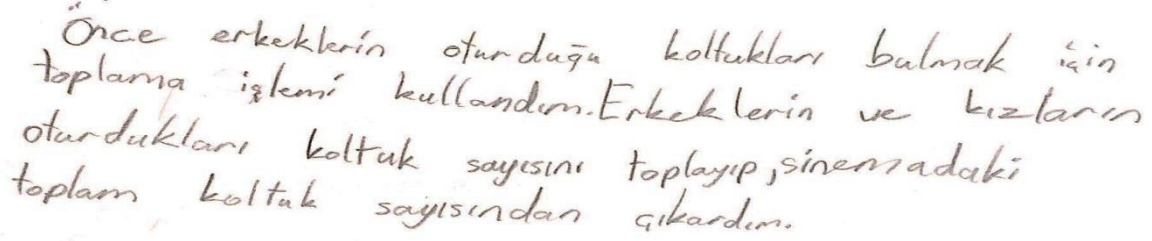 Önce erkeklerin oturduğu koltukları bulmak için
toplama işlemi kullandım. Erkeklerin ve kızların
oturdukları koltuk sayısını toplayıp, sinemadaki
toplam koltuk sayısından çıkardım.